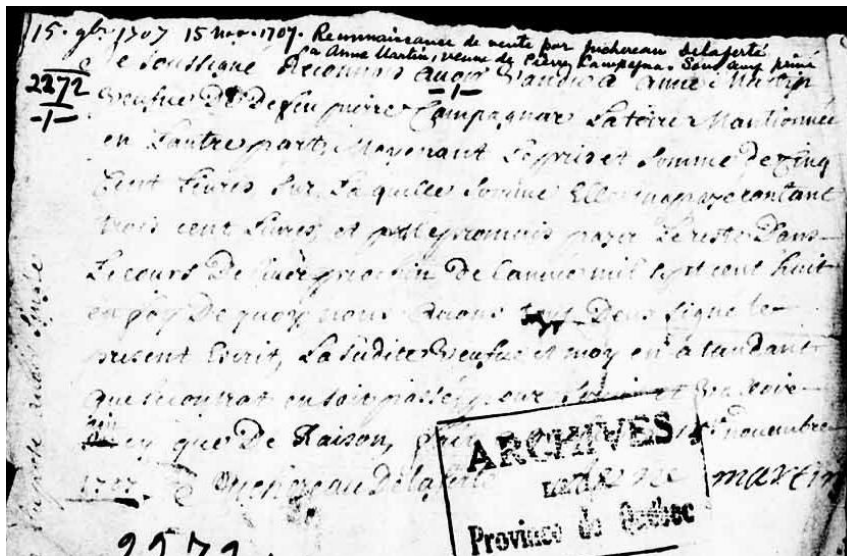 15. 9bre 1707 15 nov. 1707. Reconnaissance de vente par Juchereau delaferté
à Anne Martin, veuve de Pierre Campagna. Sous seing privé
2272
-1-
Je soussigné Reconnois avoir Vandu a anne Martin
veufue De Defeu pierre Campagnar La terre Mantionnée
en Lautre part, Moyenant Le pris et somme de Cinq
Cent livres Sur Laquelle somme Elle ma payé contant
trois cent livres, et promois payer Le reste Dans
Le cours De liuer prochin De Lannee mil sept cent huit
en foy De quoy nous avons tous Deux signé le
present Escrit, La sudite veufue et moy en atandant
que le contrat en soit passé, pour servir et valoire
ainsy que De Raison, fait novembre
1707. Juchereau Delaferté anne martin
ARCHIVES
Province de Québec
2272